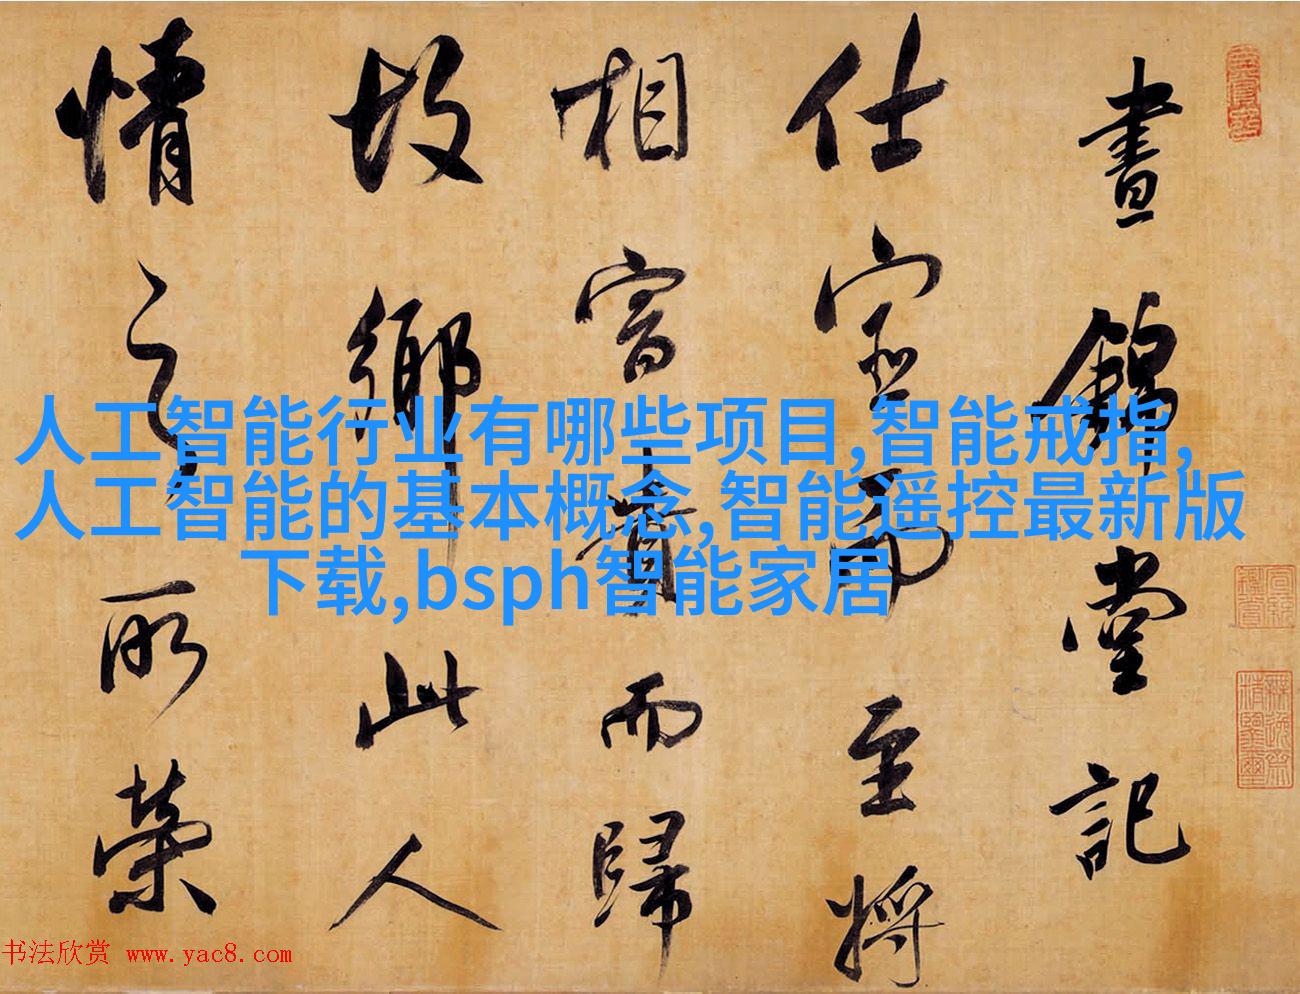 晝錦堂記
仕宦而至將
相富貴而歸
故鄉此人
情之所榮
人工智能行业有哪些项目,智能戒指,
人工智能的基本概念,智能遥控最新版
下载,bsph智能家居
书法欣赏 www.yac8.com